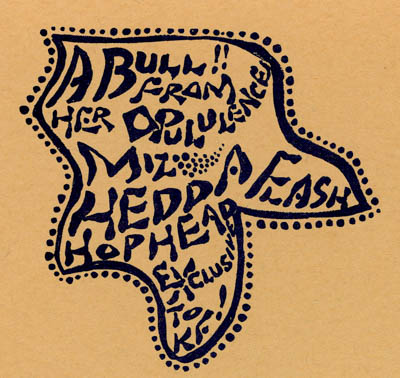 A BULL!!
FROM
HER OPULULENCE!
MIZ A FLASH
HEDDA
HOPHEAD
EXCLUSIVE
TO
KF!!